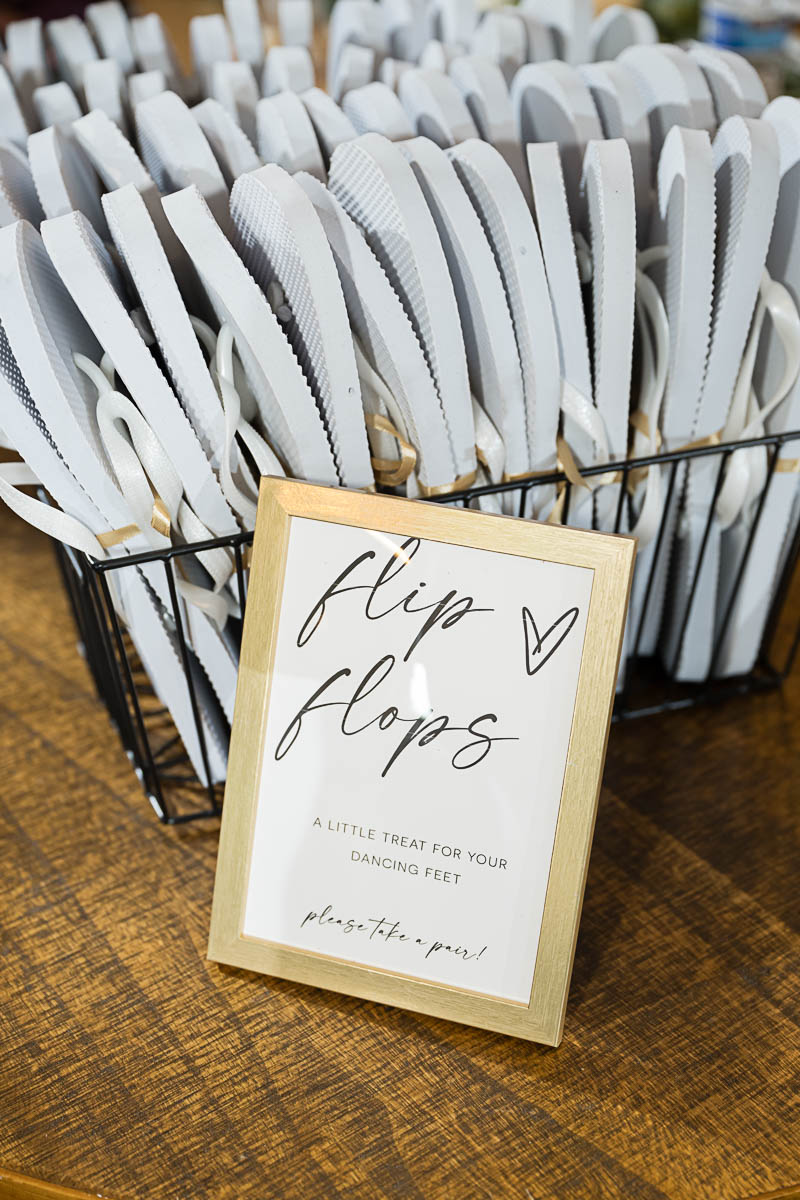 flip
flops
A LITTLE TREAT FOR YOUR
DANCING FEET
please take a pair!